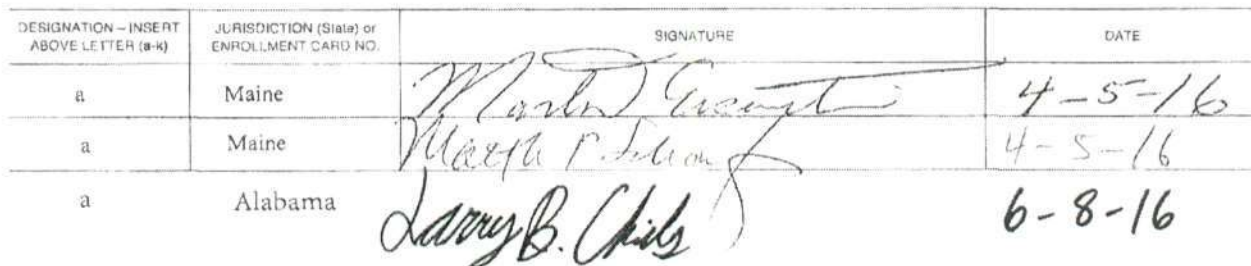 DESIGNATION – INSERT ABOVE LETTER (a-k)
JURISDICTION (State) or ENROLLMENT CARD NO.
SIGNATURE
DATE
a Maine 4-5-16
a Maine 4-5-16
a Alabama Larry B. Childs 6-8-16